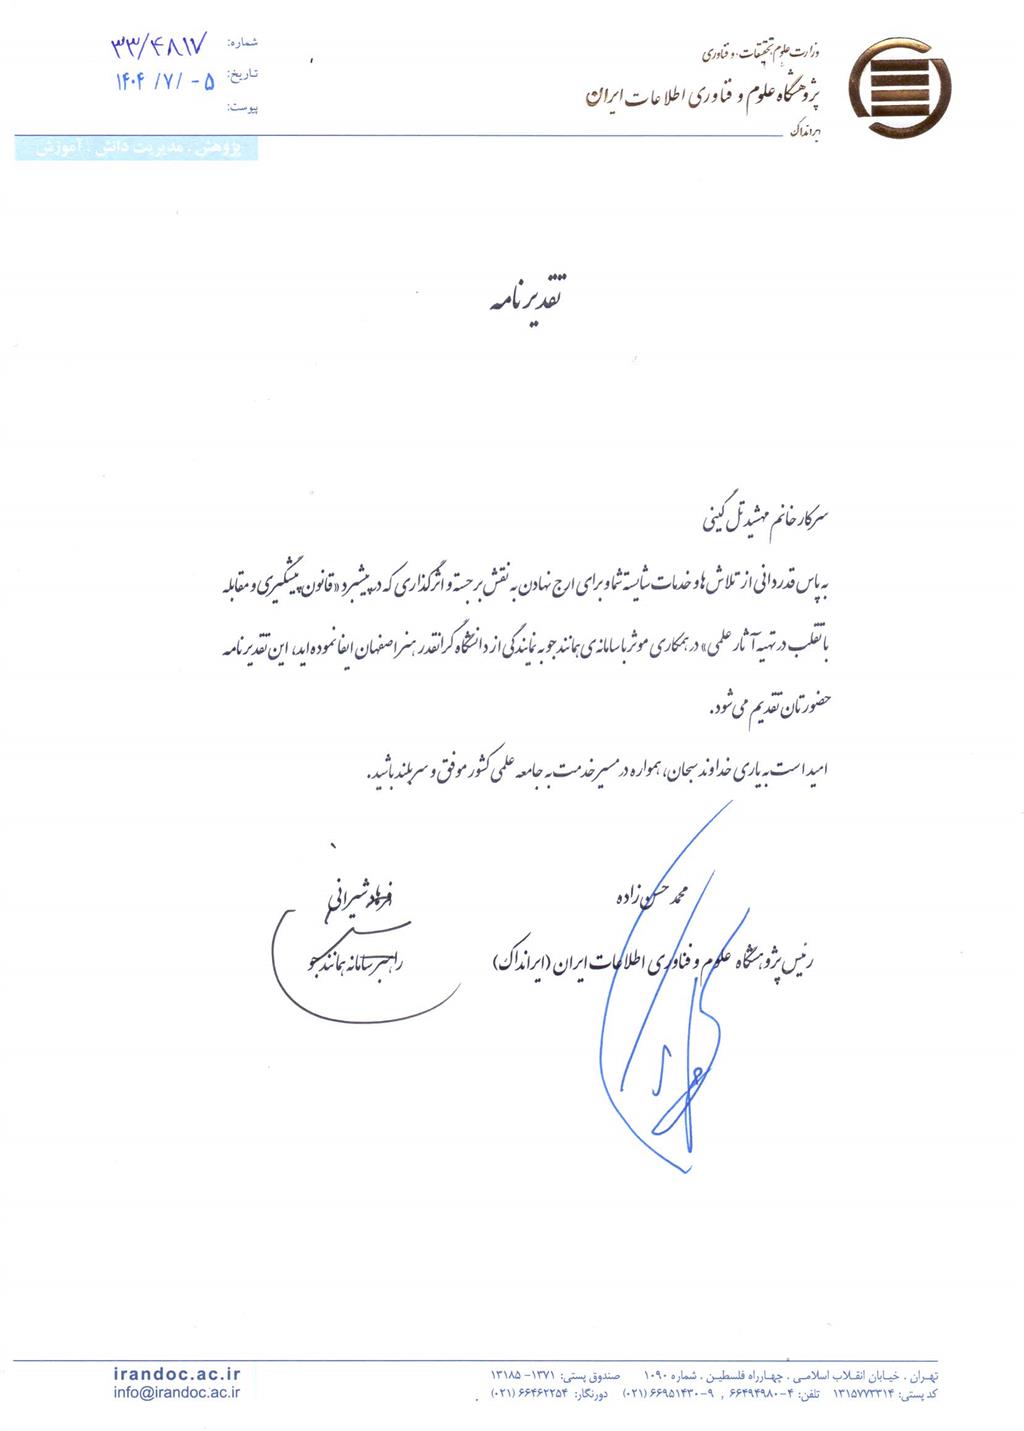 وزارت علوم، تحقیقات، و فناوری
پژوهشگاه علوم و فناوری اطلاعات ایران
ایرانداک
شماره: ۳۳/۴۸۱۷
تاریخ: ۱۴۰۴/۷/-۵
پیوست:
پژوهش . مدیریت دانش . آموزش
تقدیرنامه
سرکار خانم مهشید تل گینی
به پاس قدردانی از تلاش ها و خدمات شایسته شما و برای ارج نهادن به نقش برجسته و اثرگذاری که در پیشبرد «قانون پیشگیری و مقابله
با تقلب در تهیه آثار علمی» در همکاری موثر با سامانه ی همانندجو به نمایندگی از دانشگاه گرانقدر هنر اصفهان ایفا نموده اید، این تقدیرنامه
حضورتان تقدیم می شود.
امید است به یاری خداوند سبحان، همواره در مسیر خدمت به جامعه علمی کشور موفق و سربلند باشید.
محمد حسن زاده
رئیس پژوهشگاه علوم و فناوری اطلاعات ایران (ایرانداک)
فرهاد شیرانی
راهبر سامانه همانندجو
تهران . خیابان انقلاب اسلامی . چهارراه فلسطین . شماره ۱۰۹۰ صندوق پستی: ۱۳۷۱-۱۳۱۸۵
کد پستی: ۱۳۱۵۷۷۳۳۱۴ تلفن: ۴-۶۶۴۹۴۹۸۰ , ۹-۶۶۹۵۱۴۳۰ (۰۲۱) دورنگار: ۶۶۴۶۲۲۵۴ (۰۲۱)
irandoc.ac.ir
info@irandoc.ac.ir